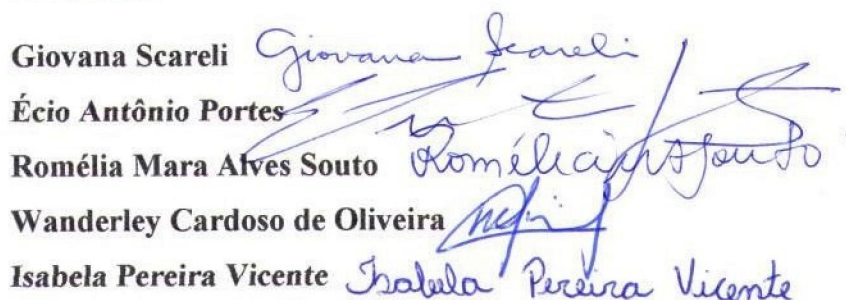 Giovana Scareli Giovana Scareli
Écio Antônio Portes
Romélia Mara Alves Souto Romélia M A Souto
Wanderley Cardoso de Oliveira
Isabela Pereira Vicente Isabela Pereira Vicente